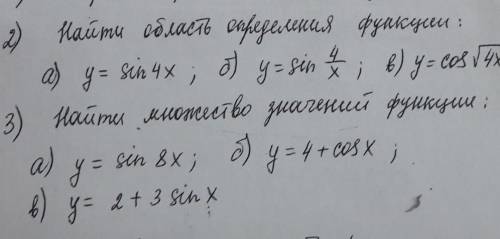 2) Найти область определения функции:
а) y = sin 4x ; б) y = sin 4/x ; в) y = cos √4x
3) Найти множество значений функции:
а) y = sin 8x ; б) y = 4 + cos x ;
в) y = 2 + 3 sin x